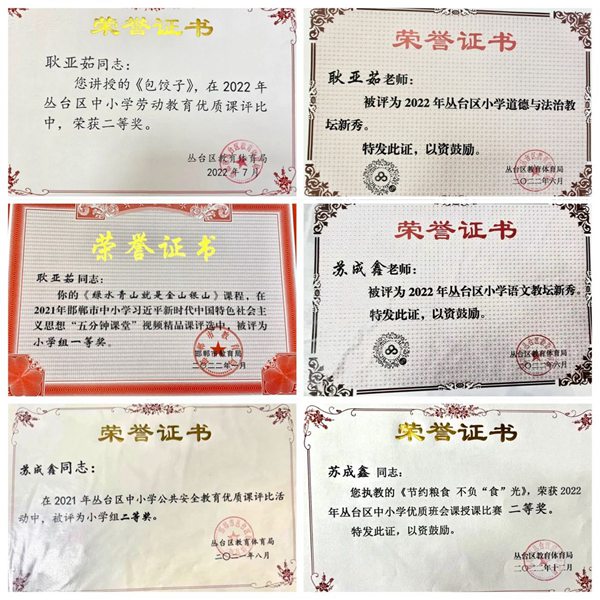 荣誉证书
耿亚茹同志：
您讲授的《包饺子》，在2022年
丛台区中小学劳动教育优质课评比
中，荣获二等奖。
丛台区教育体育局
2022年7月
荣誉证书
耿亚茹老师：
被评为2022年丛台区小学道德与法治教
坛新秀。
特发此证，以资鼓励。
丛台区教育体育局
二〇二二年六月
荣誉证书
耿亚茹同志：
你的《绿水青山就是金山银山》课程，在
2021年邯郸市中小学习近平新时代中国特色社会主
义思想“五分钟课堂”视频精品课评选中，被评为
小学组一等奖。
邯郸市教育局
二〇二二年一月
荣誉证书
苏成鑫老师：
被评为2022年丛台区小学语文教坛新秀。
特发此证，以资鼓励。
丛台区教育体育局
二〇二二年六月
荣誉证书
苏成鑫同志：
在2021年丛台区中小学公共安全教育优质课评比活
动中，被评为小学组二等奖。
丛台区教育体育局
二〇二一年八月
荣誉证书
苏成鑫 同志：
您执教的《节约粮食 不负“食”光》，荣获2022
年丛台区中小学优质班会课授课比赛 二等奖。
特发此证，以资鼓励。
丛台区教育体育局
二〇二二年十二月